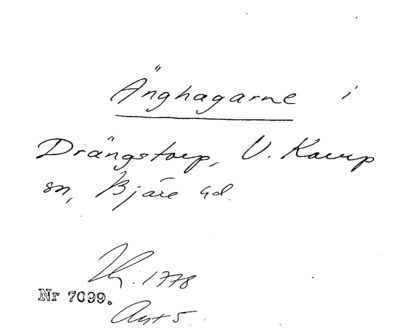 Änghagarne i
Drängstorp, V. Karup
sn, Bjäre hd.
1778
Nr 7099.